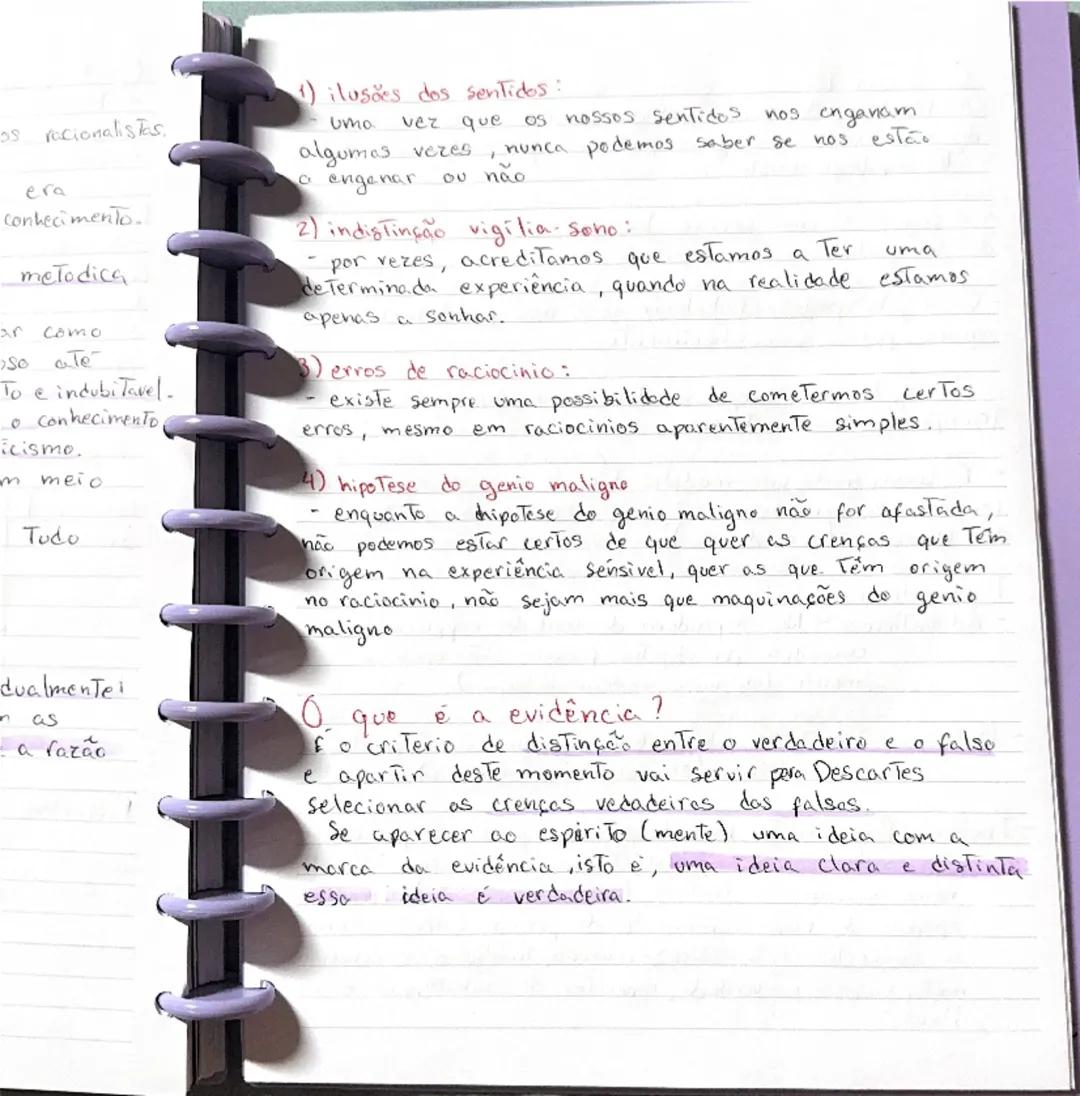 os racionalistas.
era
conhecimento.
metodica
ar como
oso até
to e indubitavel.
o conhecimento
icismo.
m meio
Tudo
dualmente i
n as
a razão
1) ilusões dos sentidos:
- uma vez que os nossos sentidos nos enganam
algumas vezes, nunca podemos saber se nos estão
a enganar ou não
2) indistinção vigília-sono:
- por vezes, acreditamos que estamos a ter uma
determinada experiência, quando na realidade estamos
apenas a sonhar.
3) erros de raciocinio:
- existe sempre uma possibilidade de cometermos certos
erros, mesmo em raciocinios aparentemente simples.
4) hipotese do genio maligno
- enquanto a hipotese do genio maligno não for afastada,
não podemos estar certos de que quer as crenças que têm
origem na experiência sensivel, quer as que têm origem
no raciocinio, não sejam mais que maquinações do genio
maligno
O que é a evidência?
É o criterio de distinção entre o verdadeiro e o falso
e apartir deste momento vai servir para Descartes
selecionar as crenças vedadeiras das falsas.
Se aparecer ao espírito (mente) uma ideia com a
marca da evidência, isto é, uma ideia clara e distinta
essa ideia é verdadeira.